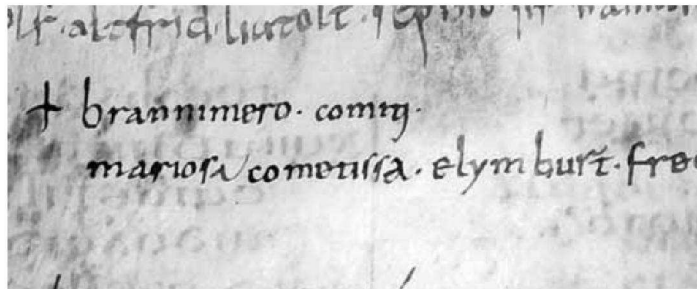 altfrid · liutolt ·
+ brannimero · comiti ·
mariosa cometissa · elymburt ·